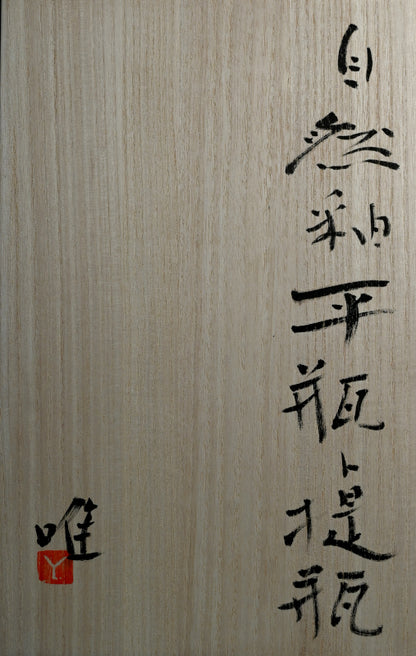 自然釉平瓶提瓶
唯
Y